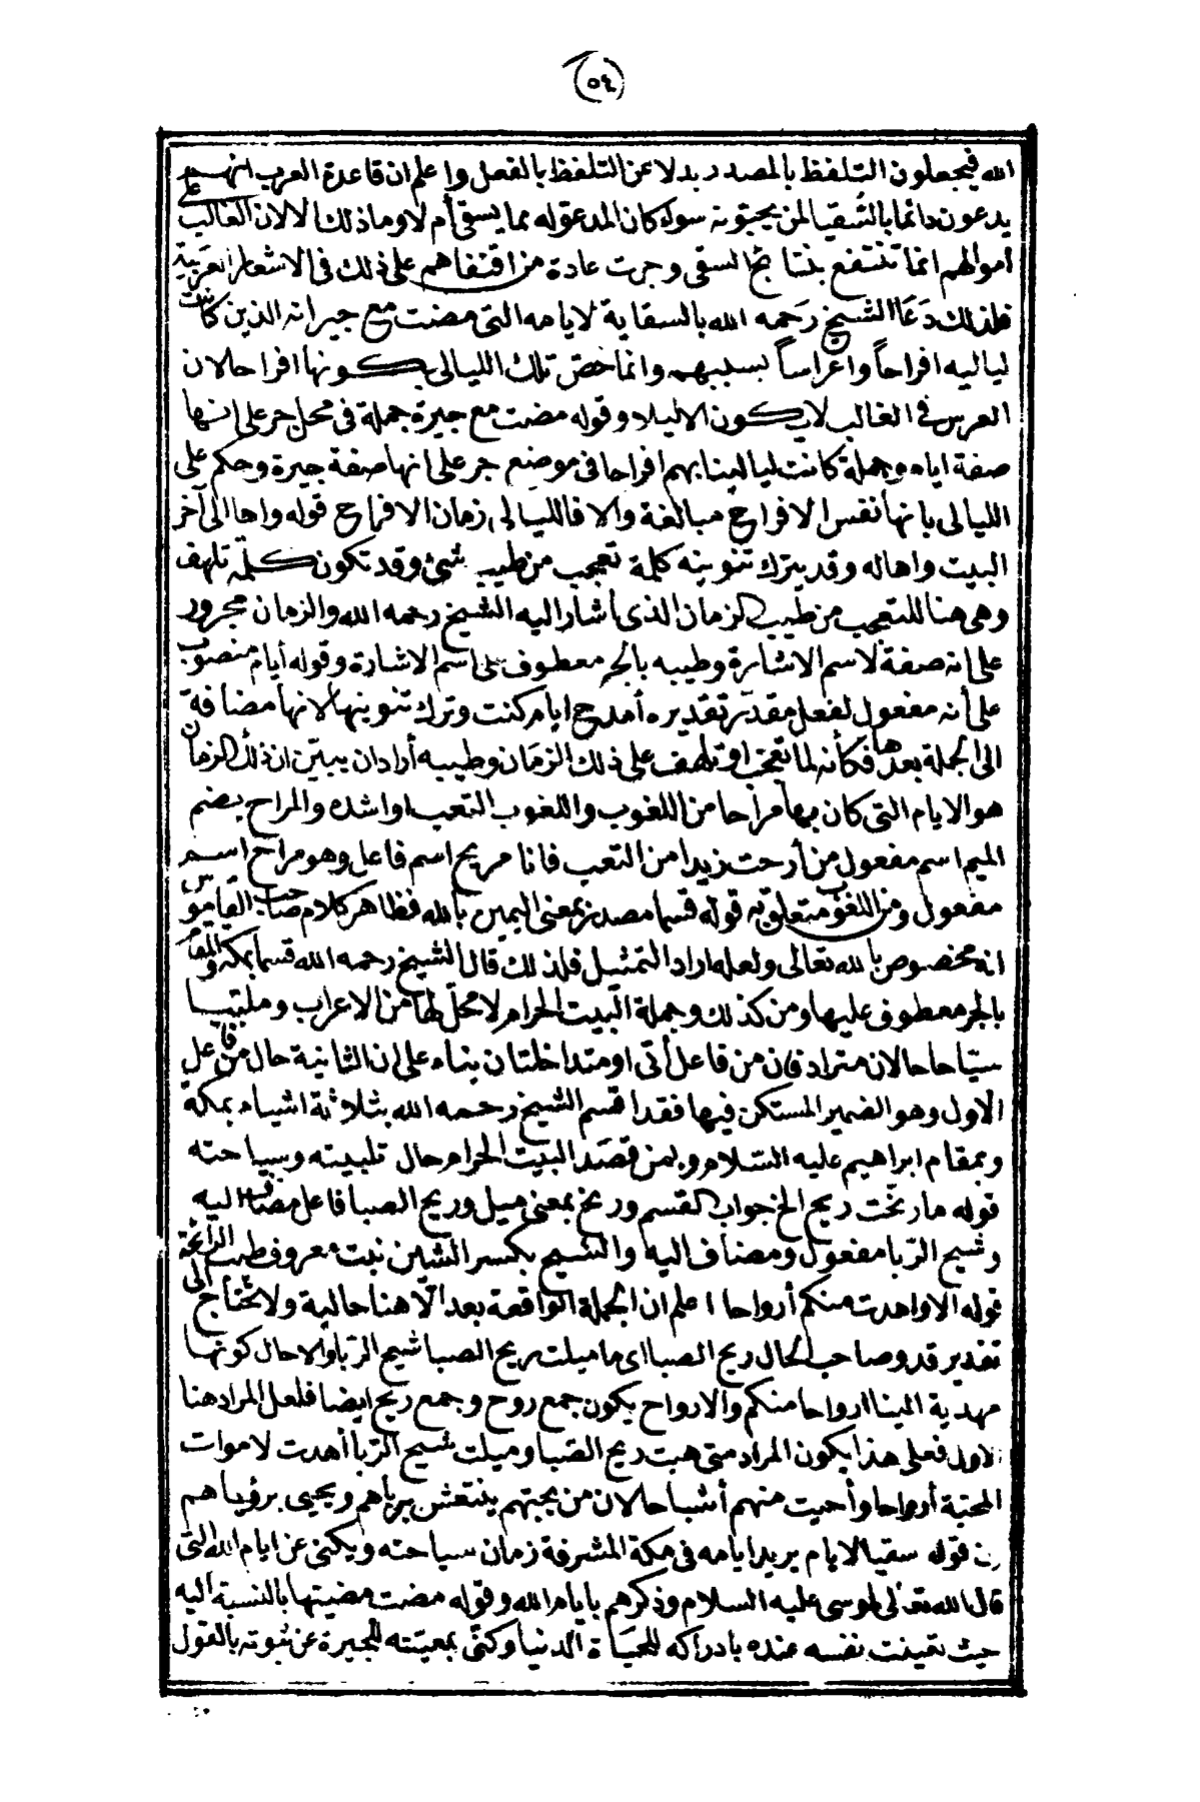 (٥٤)
الله فيجعلون التلفظ بالمصدر بدلا عن التلفظ بالفعل واعلم ان قاعدة العرب انهم
يدعون دائما بالسُّقيا لمن يحبونه سواء كان المدعو له مما يسقى أم لا وما ذلك الا لان الغالب على
أموالهم انما تنتفع بنتائج السقى وجرت عادة من اقتفاهم على ذلك فى الاشعار العربية
فلذلك دَعَا الشيخ رَحمه الله بالسقاية لايامه التى مضت مع جيرانه الذين كانت
لياليه افراحاً واعراساً بسببهم وانما خص تلك الليالى بكونها افراحا لان
العرس فى الغالب لا يكون الا ليلا وقوله مضت مع جيرة جملة فى محل جر على انها
صفة ايام وجملة كانت ليالينا بهم افراحا فى موضع جر على انها صفة جيرة وحكم على
الليالى بانها نفس الافراح مبالغة والا فالليالى زمان الافراح قوله واها الى آخر
البيت واها له وقد يترك تنوينه كلمة تعجب من طيب شئ وقد تكون كلمة تلهف
وهى هنا للتعجب من طيب الزمان الذى أشار اليه الشيخ رحمه الله والزمان مجرور
على انه صفة لاسم الاشارة وطيبه بالجر معطوف على اسم الاشارة وقوله أيام منصوب
على أنه مفعول لفعل مقدّر تقديره أمدح ايام كنت وترك تنوينها لانها مضافة
الى الجملة بعدها فكأنه لما تعجب او تلهف على ذلك الزمَان وطيبه أراد ان يبيّن ان ذلك الزمان
هو الايام التى كان بها مراحا من اللغوب واللغوب التعب او اشده والمراح بضم
الميم اسم مفعول من أرحت زيدا من التعب فانا مريح اسم فاعل وهو مراح اسم
مفعول ومن اللغوب متعلق به قوله قسما مصدر بمعنى اليمين بالله فظاهر كلام صاحب القاموس
انه مخصوص بالله تعالى ولعله اراد التمثيل فلذلك قال الشيخ رحمه الله قسما بمكة والمقام
بالجر معطوف عليها ومن كذلك وجملة البيت الحرام لا محلّ لها من الاعراب وملبيا
سيّاحا حالان مترادفان من فاعل أتى او متداخلتان بناء على ان الثانية حال من فاعل
الاول وهو الضمير المستكن فيها فقد اقسم الشيخ رحمه الله بثلاثة اشياء بمكة
وبمقام ابراهيم عليه السّلام وبمن قصَد البيت الحرام حال تلبيته وسياحته
قوله ما رنّحت ريح الخ جواب القسم ورنح بمعنى ميل وريح الصبا فاعل مضاف اليه
وشيح الرّبا مفعول ومضاف اليه والشيح بكسر الشين نبت معروف طيب الرائحة
قوله الا واهدت منكم أرواحا اعلم ان الجملة الواقعة بعد الّا هنا حالية ولا تحتاج الى
تقدير قد وصاحب الحال ريح الصبا اى ما ميلت ريح الصبا شيح الربا الا حال كونها
مهدية الينا ارواحا منكم والارواح يكون جمع روح وجمع ريح ايضا فلعل المراد هنا
الاول فعلى هذا يكون المراد متى هبت ريح الصّبا وميلت شيح الرّبا أهدت لاموات
المحبة أرواحا وأحيت منهم أشباحا لان من يحبّهم ينتعش برياهم ويحيى برؤياهم
ن قوله سقيا لايام يريد ايامه فى مكة المشرفة زمان سياحته ويكنى عن ايام الله التى
قال الله تعالى لموسى عليه السلام وذكرهم بايام الله وقوله مضت مضيتها بالنسبة اليه
حيث تعينت نفسه عنده بادراكه للحيَاة الدنيا وكنّى بمعيّته للجيرة عن ثبوته بالقول